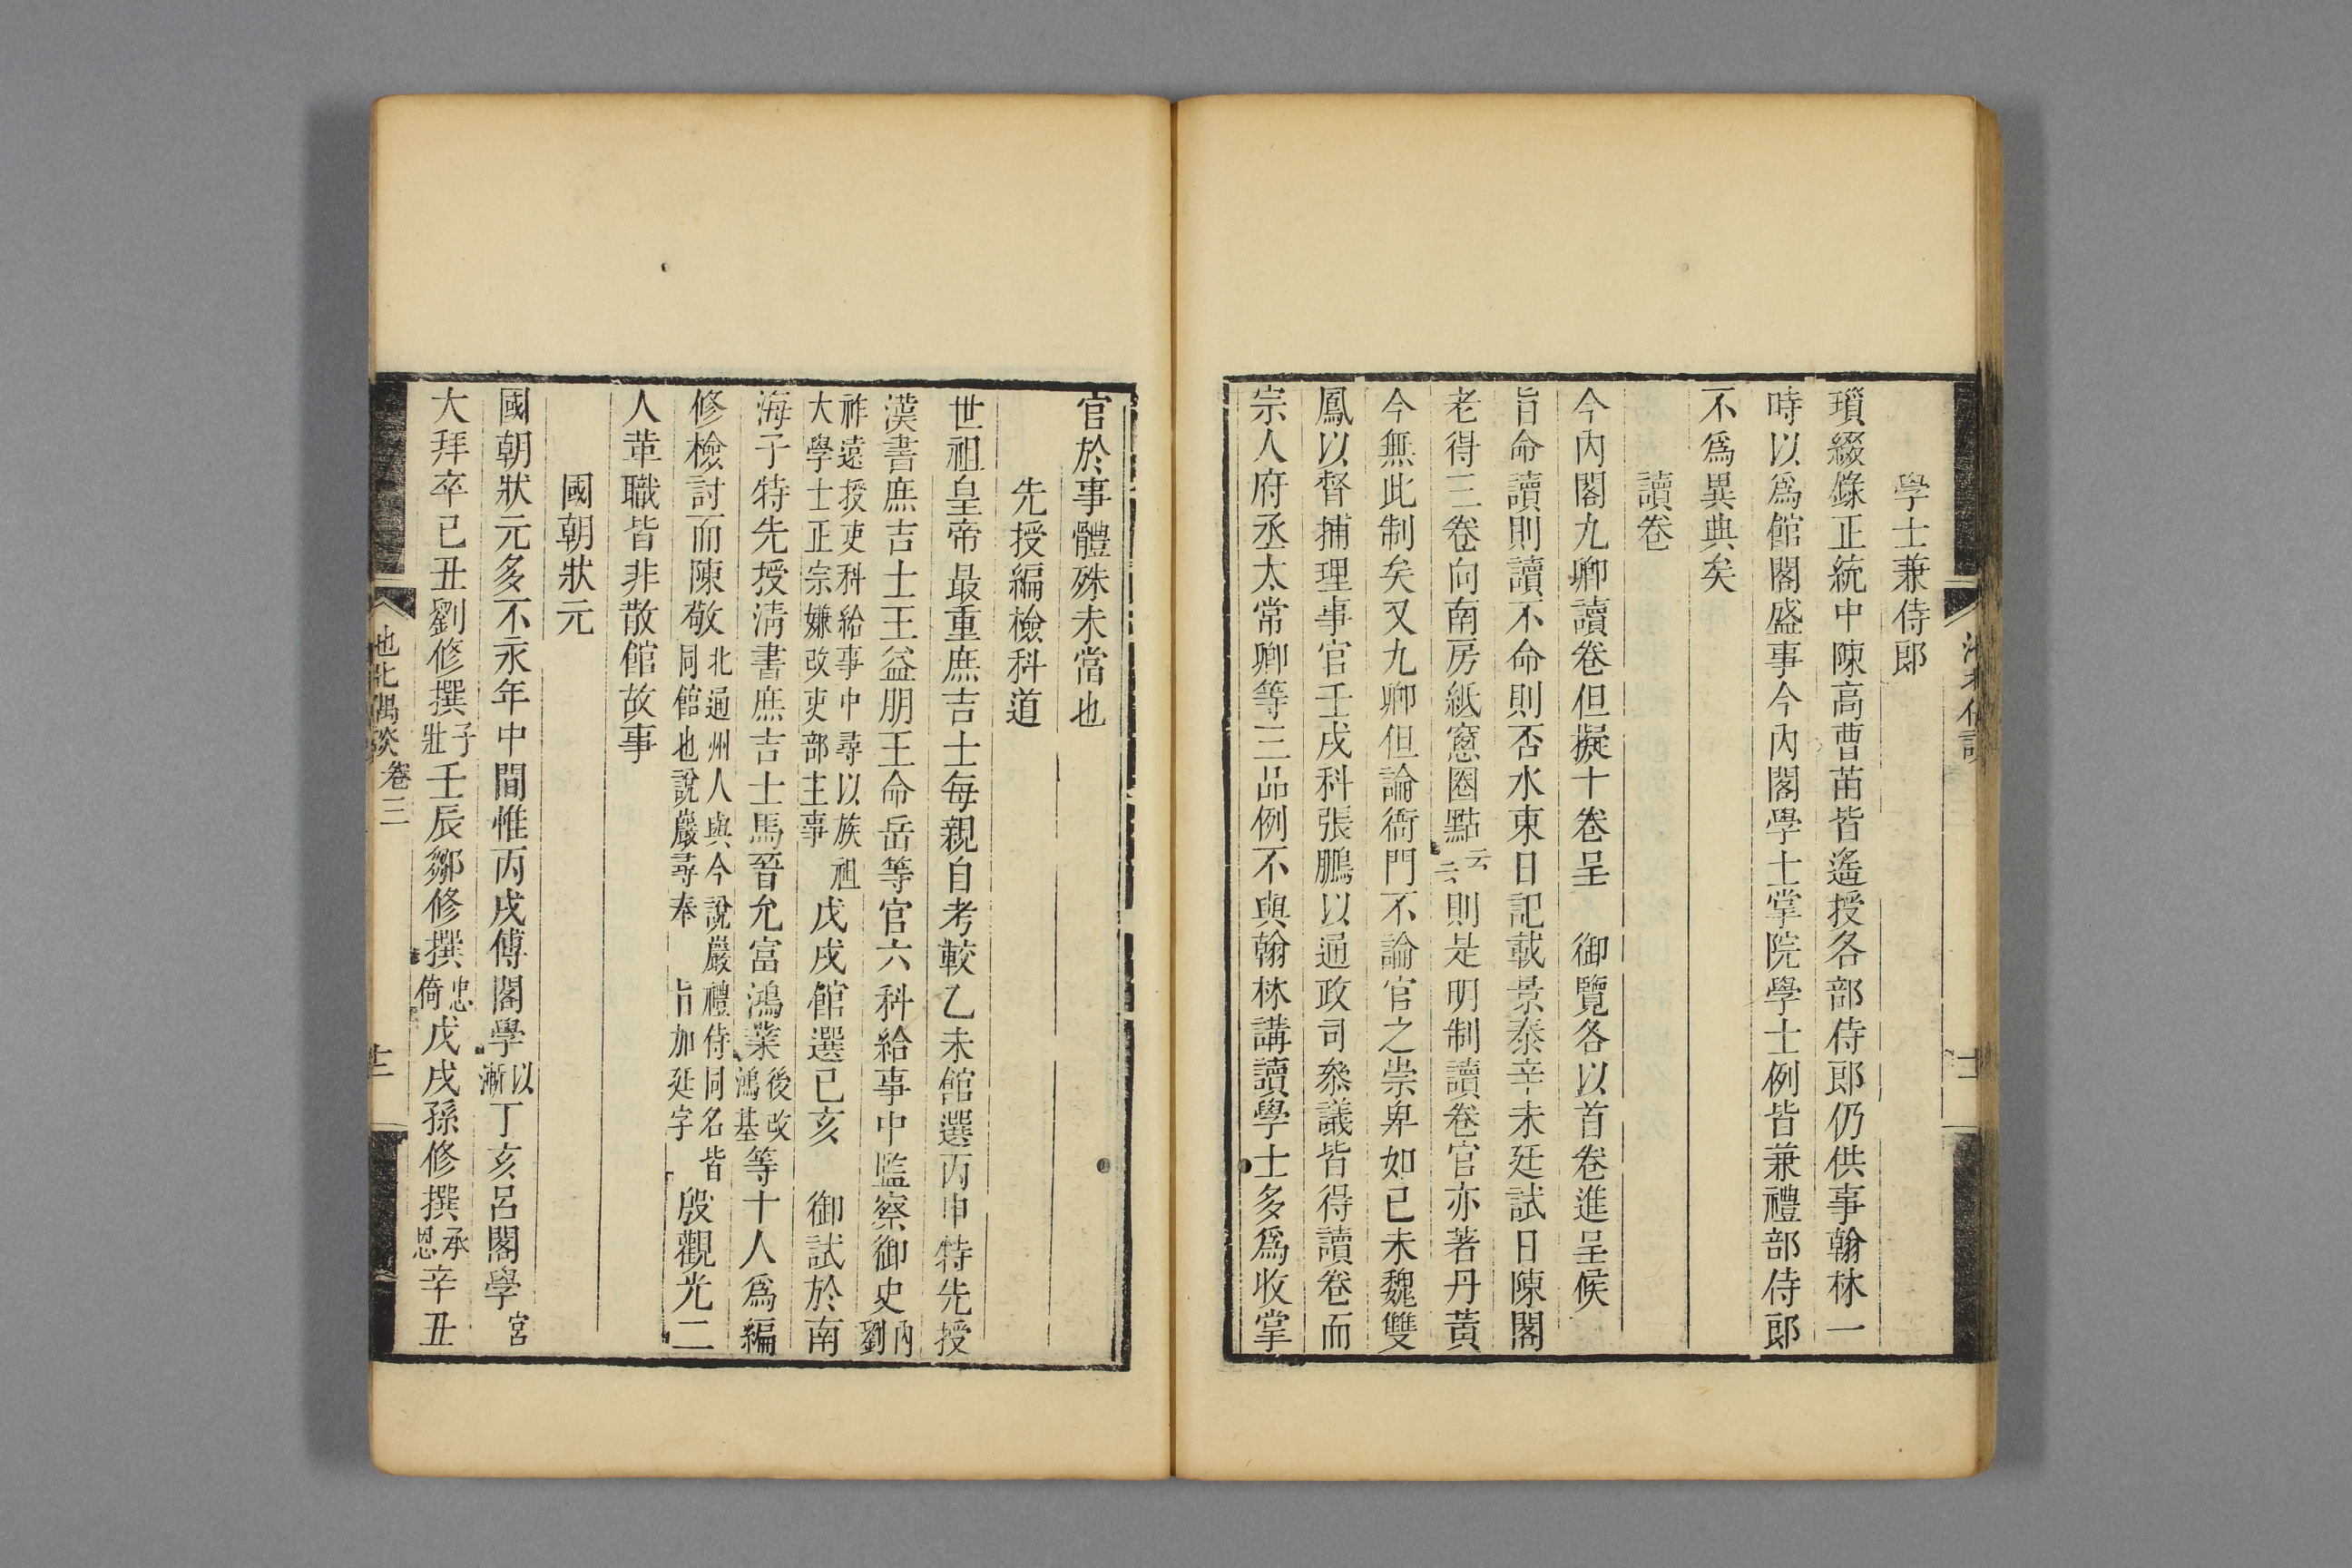 學士兼侍郎
瑣綴錄正統中陳高曹苗皆遙授各部侍郎仍供事翰林一
時以爲館閣盛事今內閣學士掌院學士例皆兼禮部侍郎
不爲異典矣
讀卷
今內閣九卿讀卷但擬十卷呈　御覽各以首卷進呈候
旨命讀則讀不命則否水東日記載景泰辛未廷試日陳閣
老得三卷向南房紙窻圈點云云則是明制讀卷官亦著丹黃
今無此制矣又九卿但論衙門不論官之崇卑如己未魏雙
鳳以督捕理事官壬戌科張鵬以通政司叅議皆得讀卷而
宗人府丞太常卿等三品例不與翰林講讀學士多爲收掌
官於事體殊未當也
先授編檢科道
世祖皇帝最重庶吉士每親自考較乙未館選丙申特先授
漢書庶吉士王益朋王命岳等官六科給事中監察御史內劉
祚遠授吏科給事中尋以族祖大學士正宗嫌改吏部主事戊戌館選己亥　御試於南
海子特先授淸書庶吉士馬晉允富鴻業後改鴻基等十人爲編
修檢討而陳敬北通州人與今說巖禮侍同名皆同館也說巖尋奉旨加廷字殷觀光二
人革職皆非散館故事
國朝狀元
國朝狀元多不永年中間惟丙戌傅閣學以漸丁亥呂閣學宮
大拜卒己丑劉修撰子壯壬辰鄒修撰忠倚戊戌孫修撰承恩辛丑
池北偶談卷三